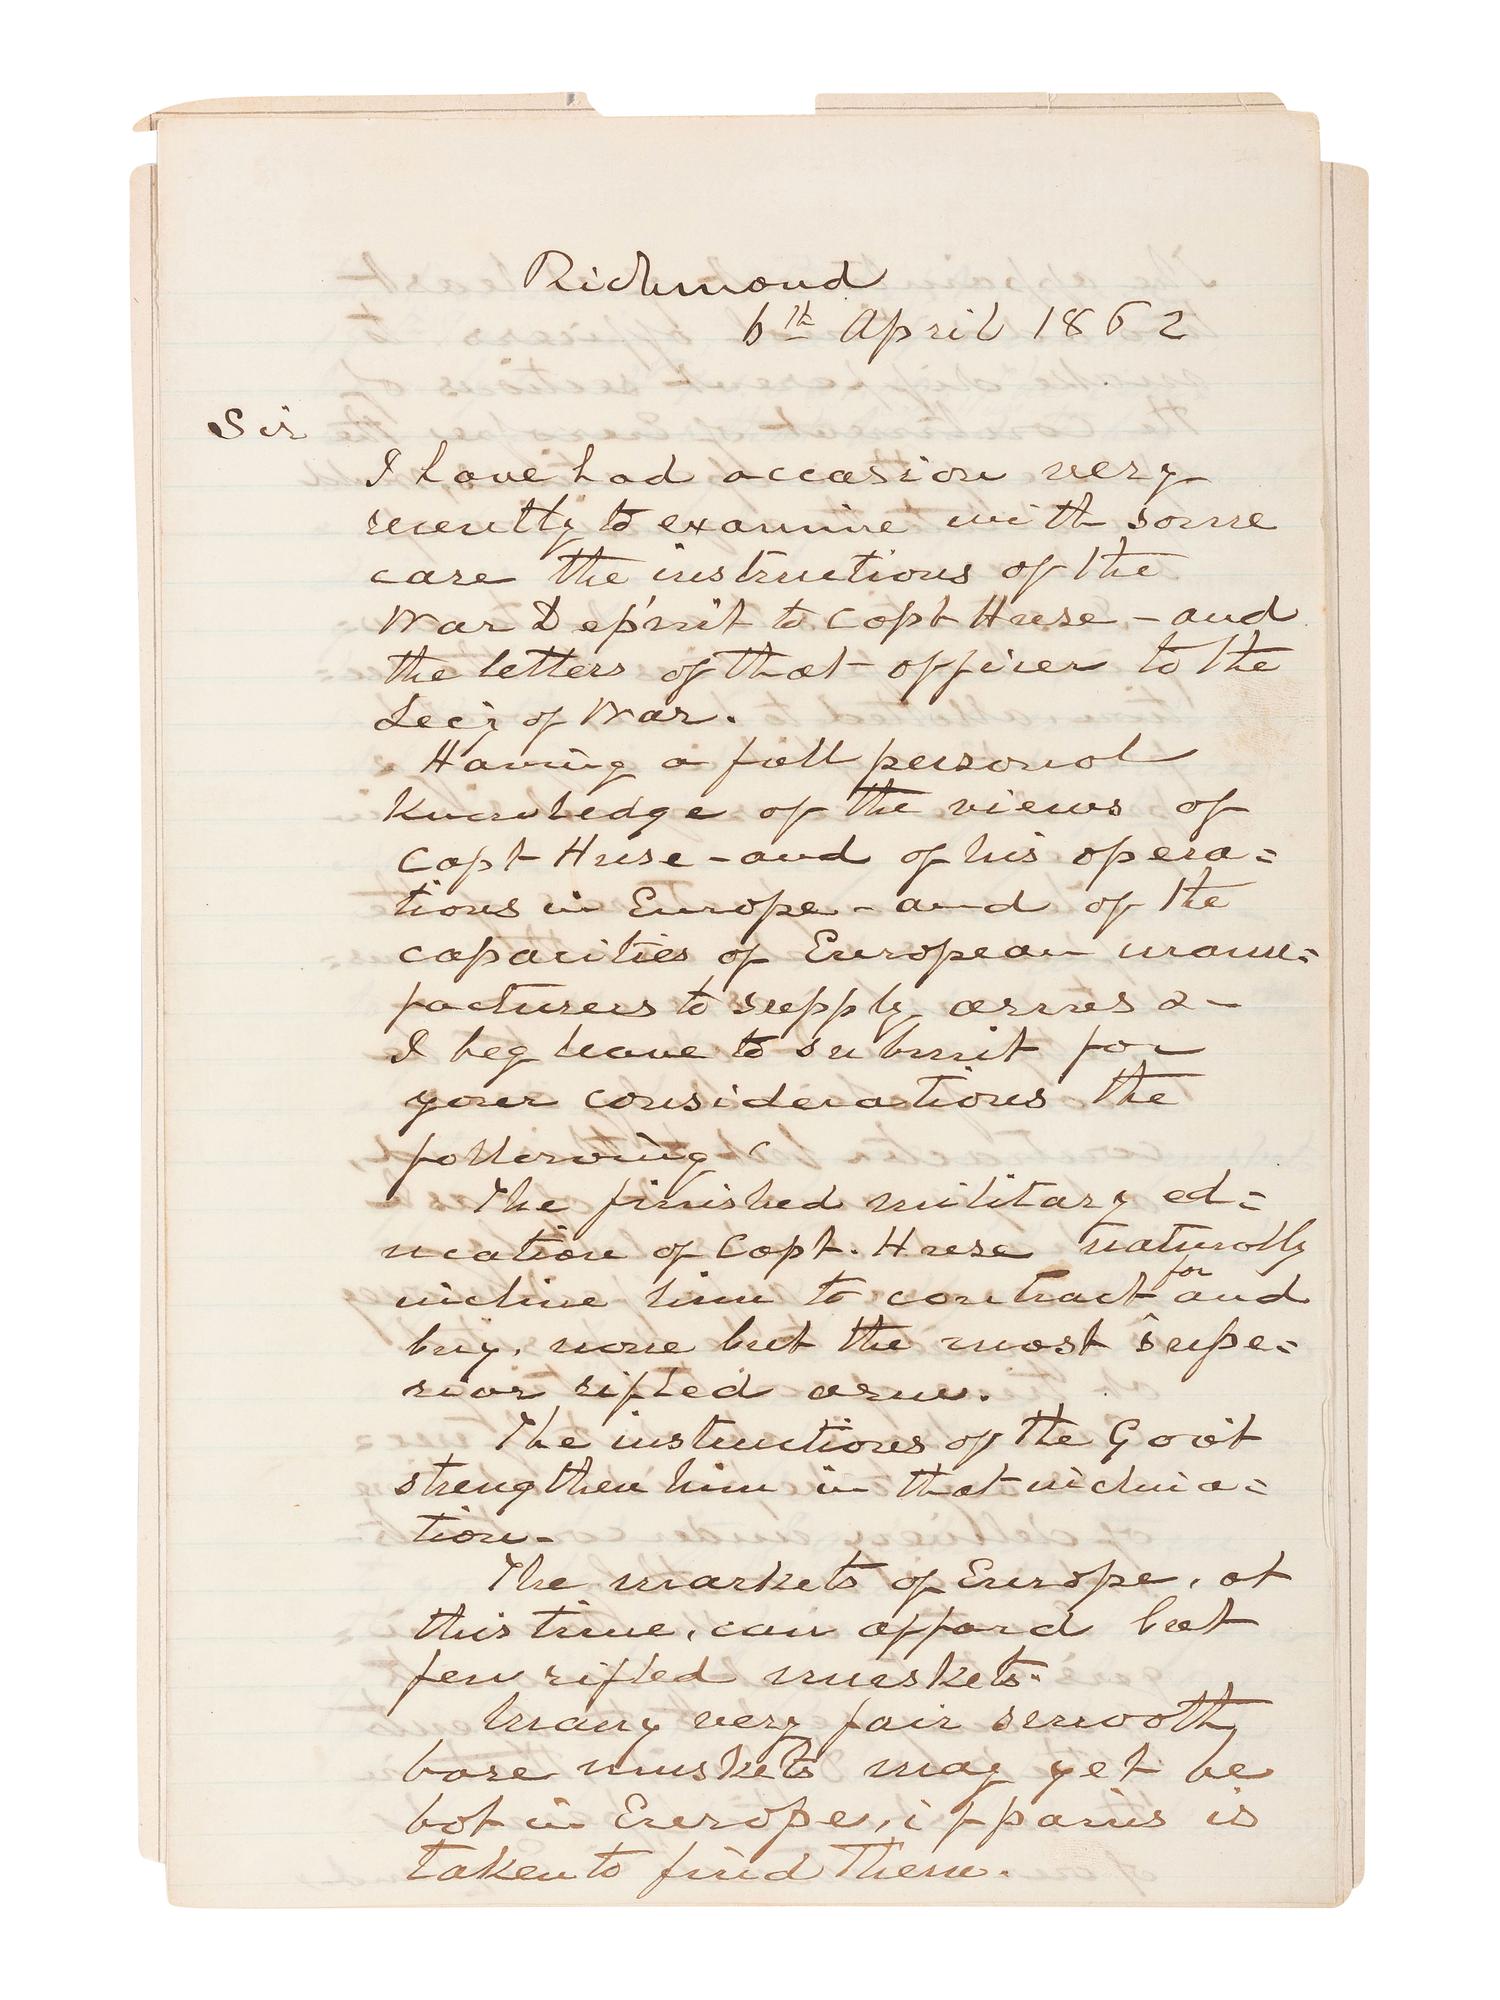 Richmond
6th April 1862
Sir
I have had occasion very
recently to examine with some
care the instructions of the
War Dep'mt to Capt Huse - and
the letters of that officer to the
Sec'y of War.
Having a full personal
knowledge of the views of
Capt Huse - and of his opera=
tions in Europe - and of the
capacities of European manu=
facturers to supply arms &-
I beg leave to submit for
your considerations the
following
The finished military ed=
ucation of Capt. Huse naturally
incline him to contract for and
buy, none but the most supe=
rior rifled arms.
The instructions of the Gov't
strengthen him in that inclina=
tion-
The markets of Europe, at
this time, can afford but
few rifled muskets.
Many very fair smooth
bore muskets may yet be
bot in Europe, if pains is
taken to find them.